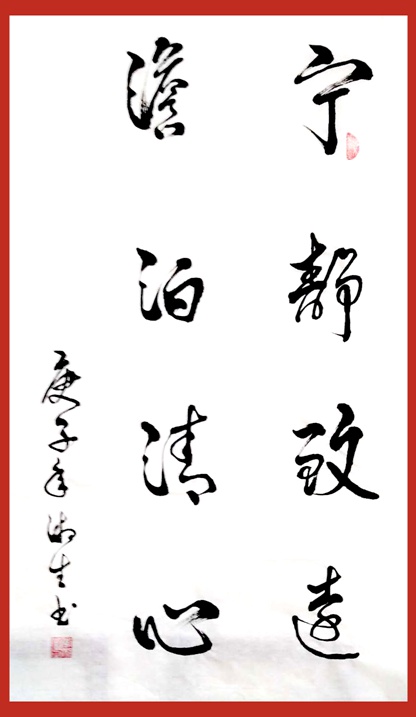 宁静致远
澹泊清心
庚子年湘生书